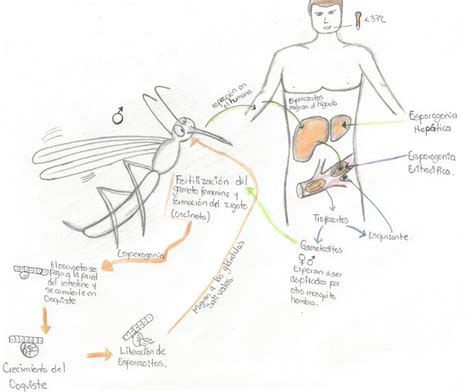 <37°C
♂
Inyección en
el humano
Esporozoitos
migran al hígado
Esporogonia
Hepática
Esporogonia
Eritrocítica.
Fertilización del
gameto femenino y
formación del zigoto
(oocineto)
Trofozoitos
Esquizonte.
Gametocitos
♀♂
Esperan a ser
aspirados por
otro mosquito
hembra.
Esporogonia
El oocineto se
pega a la pared
del intestino y
se convierte en
Ooquiste
Migran a las glándulas
salivales
Crecimiento del
Ooquiste
Liberación de
Esporozoitos.